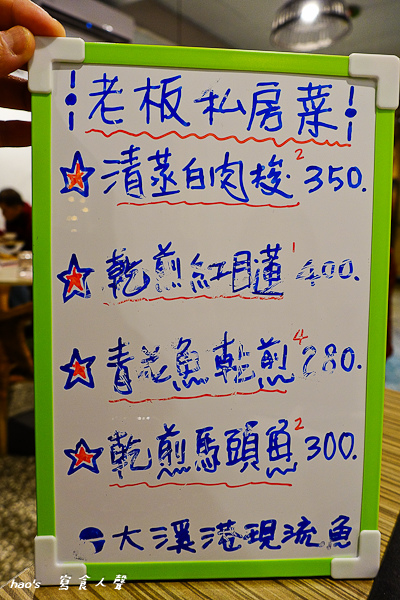 老板私房菜!
★清蒸白肉梭 2 350.
★乾煎紅目蓮 1 400.
★青花魚乾煎 4 280.
★乾煎馬頭魚 2 300.
大溪港現流魚
hao's 寫食人聲